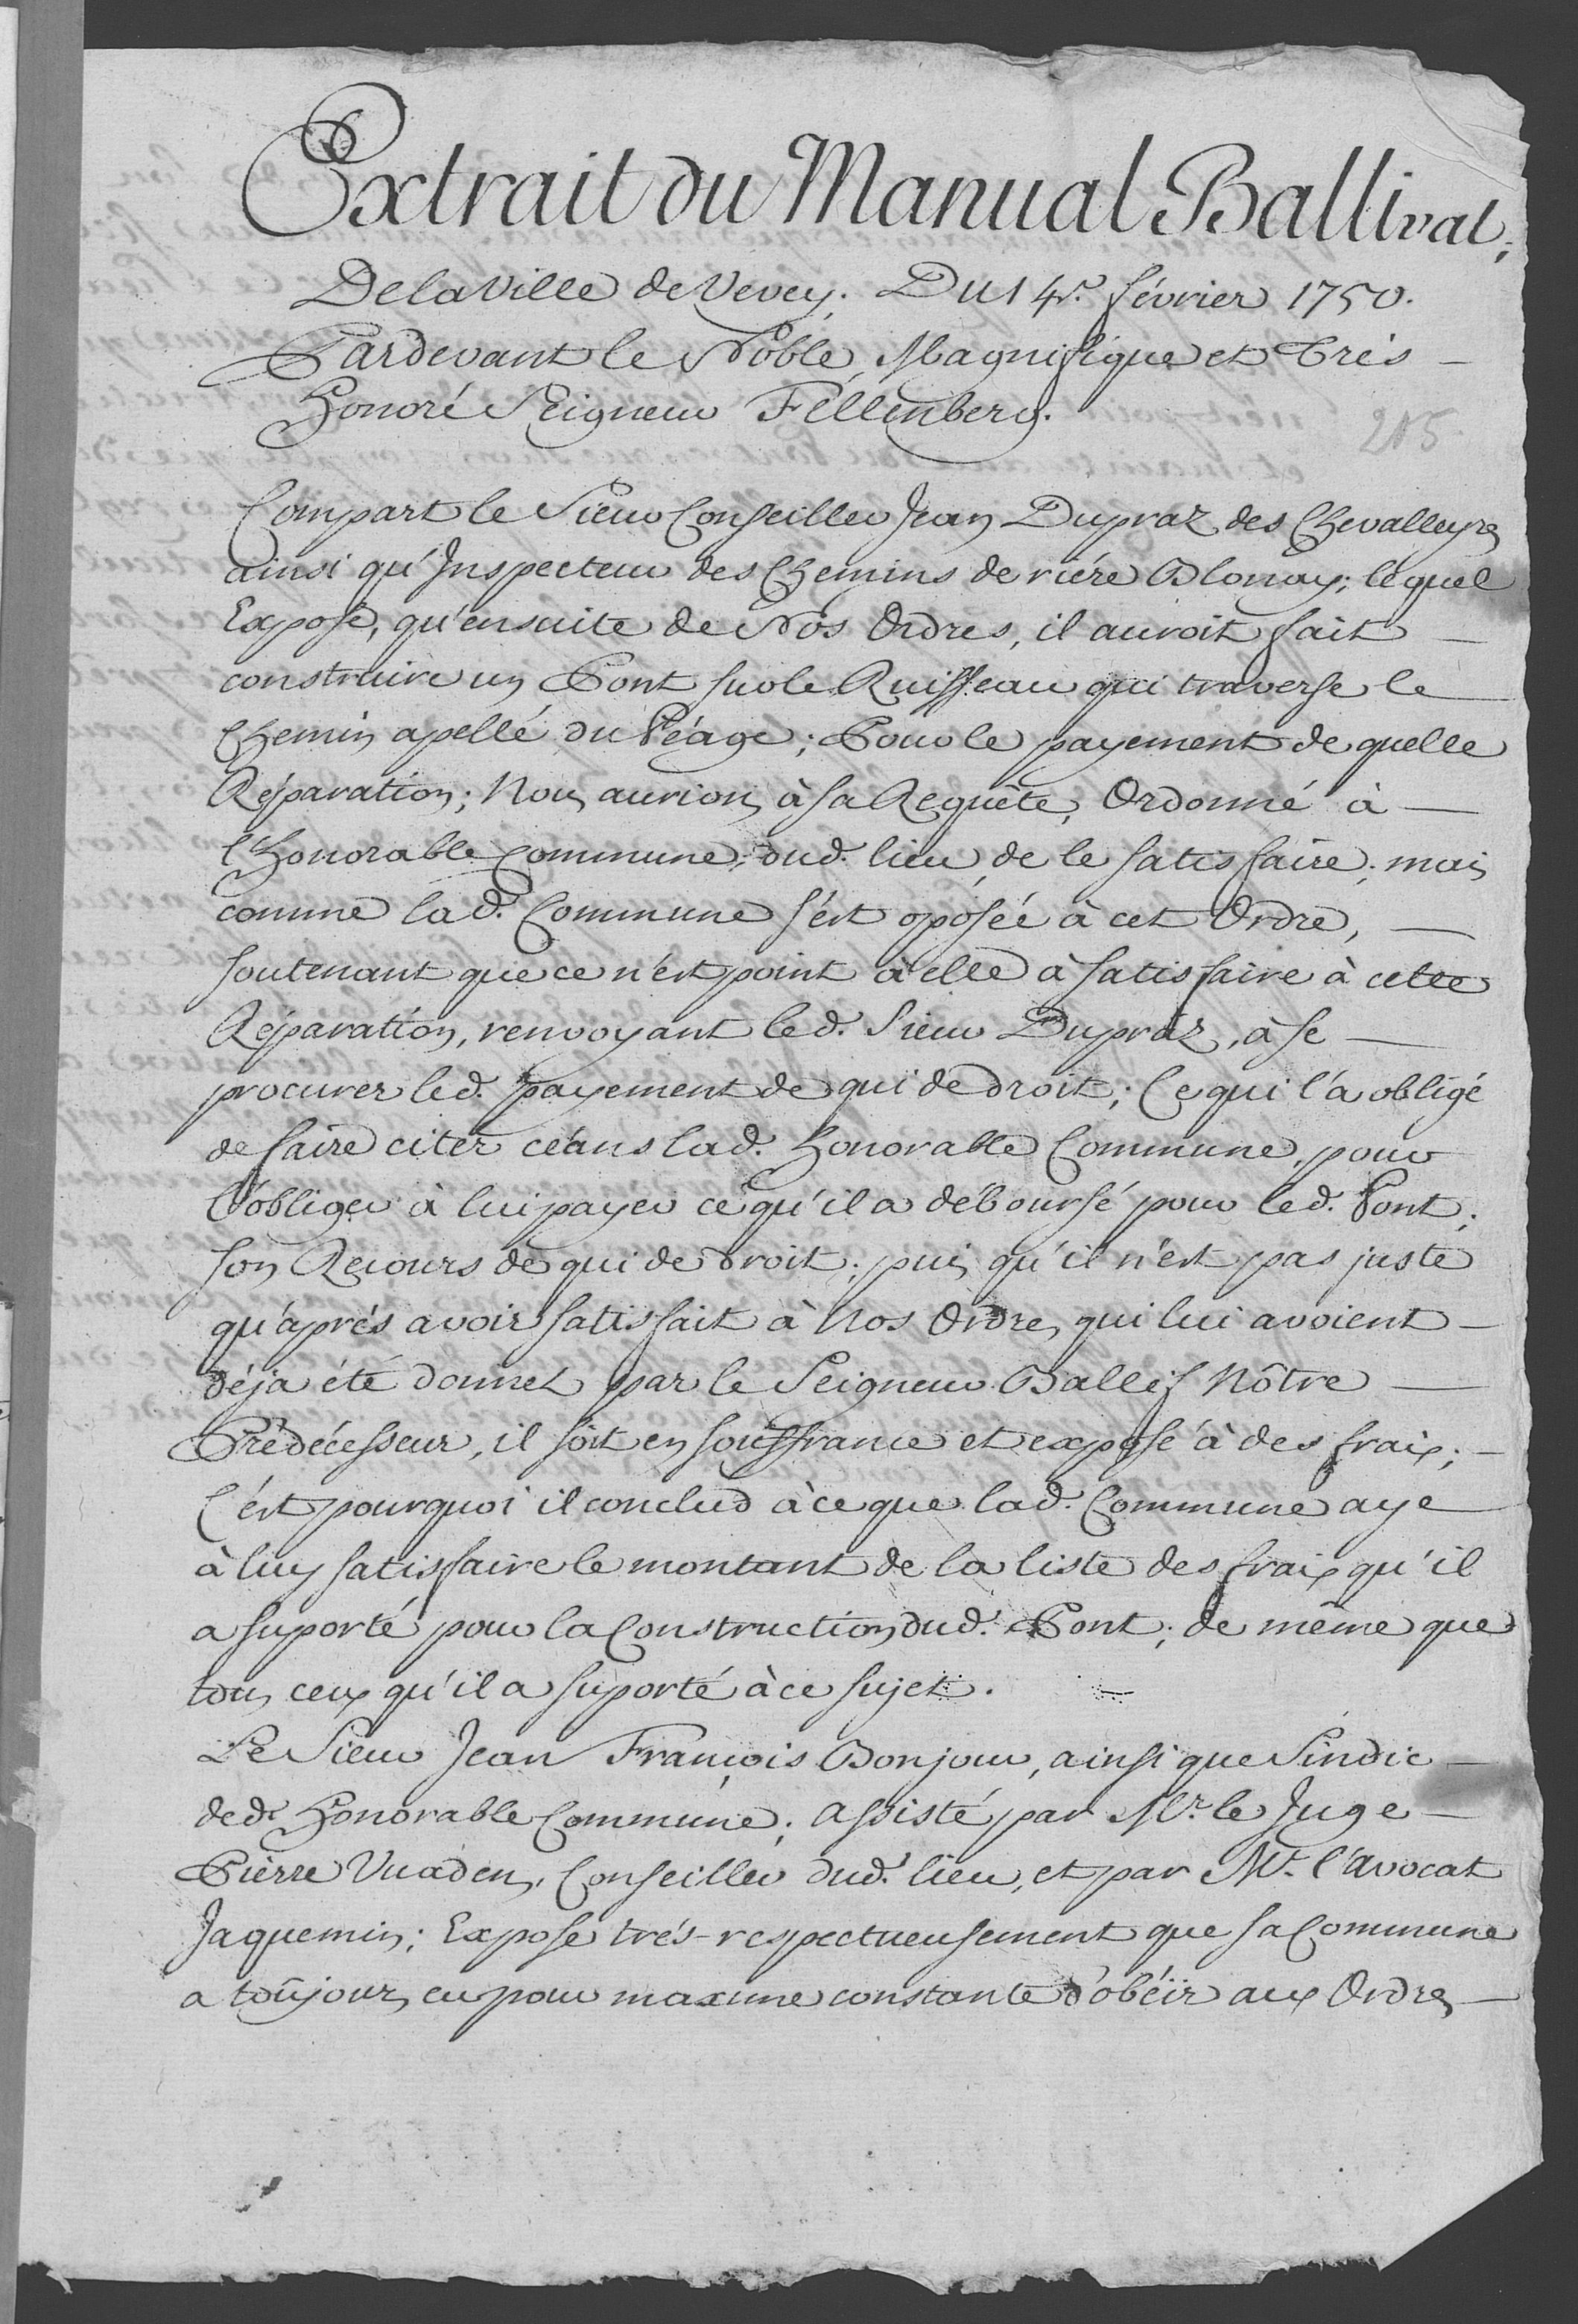 Extrait du Manual Ballival,
De la Ville de Vevey. Du 14e. février 1750.
Pardevant le Noble, Magnifique et Très
Honoré Seigneur Féllenberg.
215
Compart le Sieur Conseiller Jean Dupraz des Chevalleyres
ainsi qu'Inspecteur des Chemins de riére Blonay; lequel
Expose, qu'ensuite de Nos Ordres, il auroit fait
construire un Pont sur le Ruisseau qui traverse le
Chemin apellé du Péage; Pour le payement de quelle
Réparation; Nous aurions à sa Requête, Ordonné à
l'Honorable Commune, dud. lieu, de le satisfaire; mais
comme lad. Commune s'ést oposéé à cet Ordre,
soutenant que ce n'est point à elle à satisfaire à cette
Réparation, renvoyant led. Sieur Dupraz, à se
procurer led. payement de qui de droit; Ce qui l'a obligé
de faire citer céans lad. Honorable Commune, pour
l'obliger à lui payer ce qu'il a déboursé pour led. Pont;
son Recours de qui de droit; puis qu'il n'est pas juste
qu'aprés avoir satisfait à Nos Ordres, qui lui avoient
déja été donnez par le Seigneur Ballif Nôtre
Prédécesseur, il soit en souffrance et exposé à des fraix;
C'ést pourquoi il conclud à ce que lad. Commune aye
à luy satisfaire le montant de la liste des fraix qu'il
a suporté pour la Construction dud. Pont; de même que
tous ceux qu'il a suporté à ce sujet.
Le Sieur Jean François Bonjour, ainsi que Sindic
de d. Honorable Commune; Assisté par Mr. le Juge
Pierre Vuaden, Conseiller dud. lieu, et par Mr. l'Avocat
Jaquemin; Expose trés-respectueusement que sa Commune
a toûjours eu pour maxime constante d'obéir aux Ordres